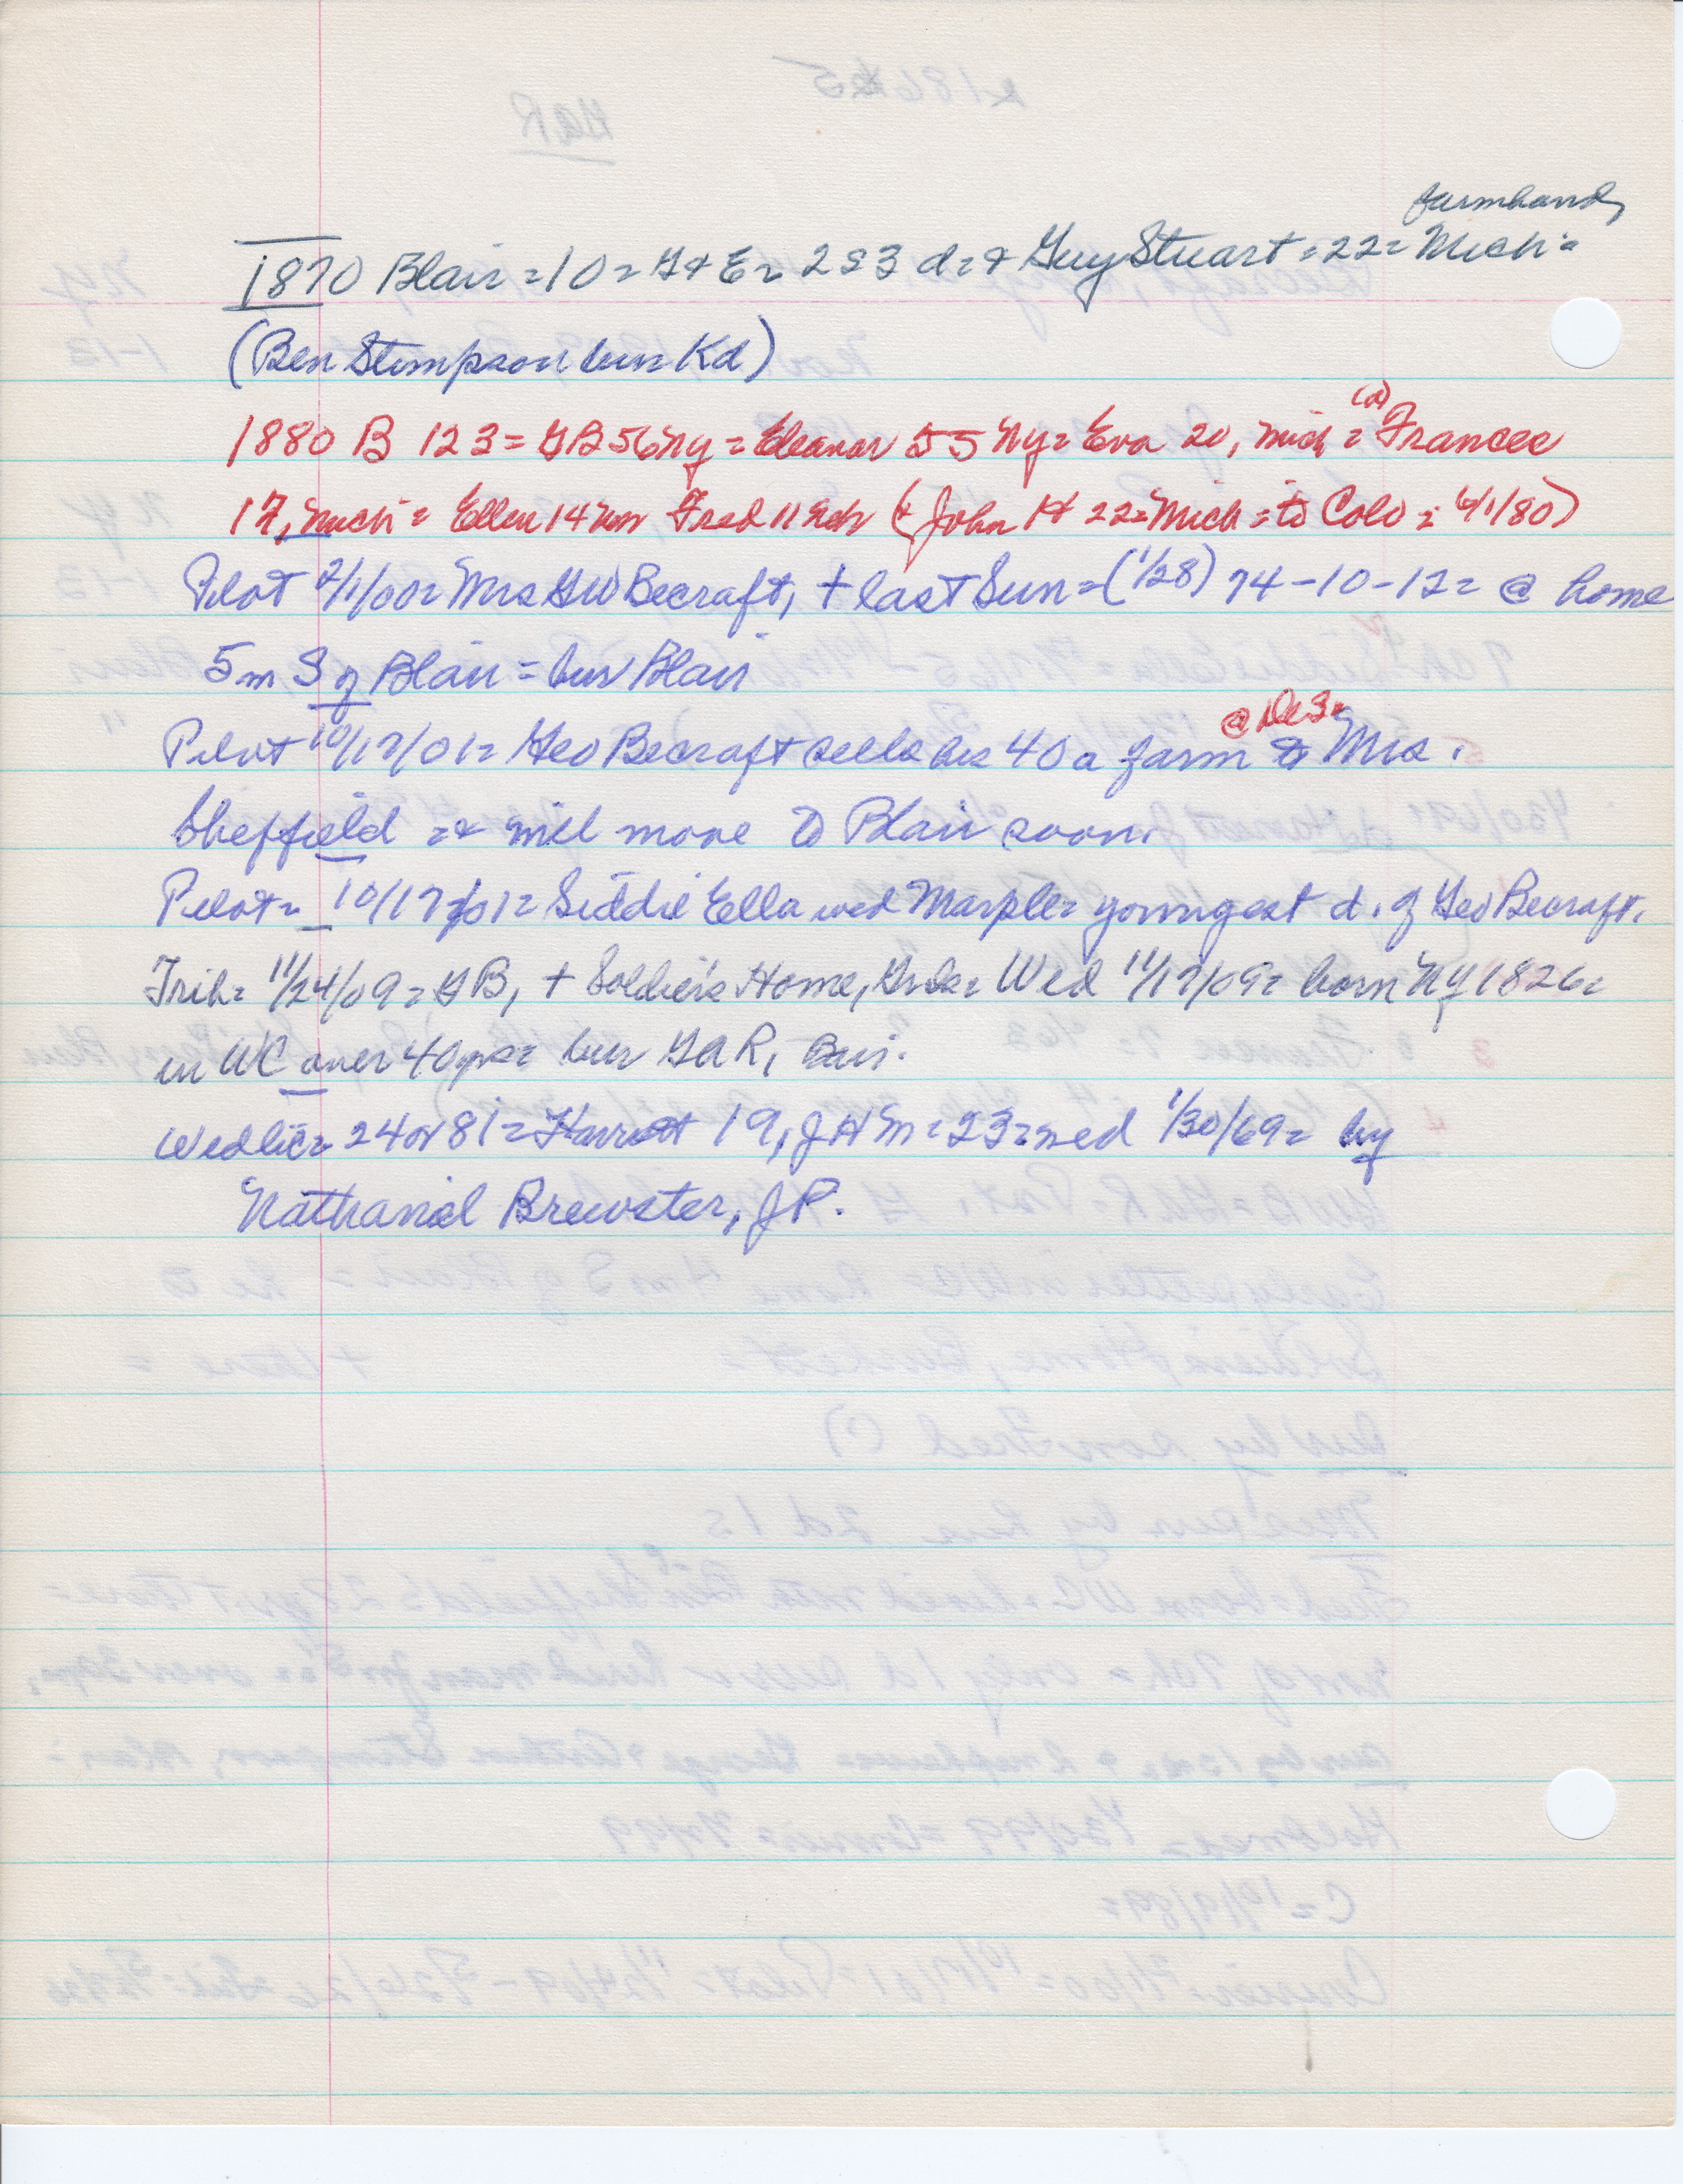 farmhand,
1870 Blair = 10 = G & E = 2 s 3 d = & Guy Stuart = 22 = Mich =
(Ben Stimpson bur Kd)
1880 B 123 = GB 56 Ny = Eleanor 55 Ny = Eva 20, Mich = (a) Frances
17, Mich = Ellen 14 Fred 11 Neb (& John H 22 = Mich = to Colo = 4/1/80)
Pilot 2/1/00 = Mrs Geo Becraft, + last Sun = (1/28) 74-10-12 = @ home
5 m S of Blair = bur Blair
@ De S =
Pilot 10/17/01 = Geo Becraft sells his 40 a farm to Mrs.
Sheffield = & will move to Blair soon.
Pilot = 10/17/01 = Siddie Ella wed Marple = youngest d. of Geo Becraft.
Trib = 11/24/09 = GB, + Soldier's Home, = Wed 11/17/09 = born NY 1826 =
in WC over 40 yrs = bur GAR,
Wed lic = 24 or 81 = Harriett 19, J H M = 23 = wed 1/30/69 = by
Nathaniel Brewster, JP.